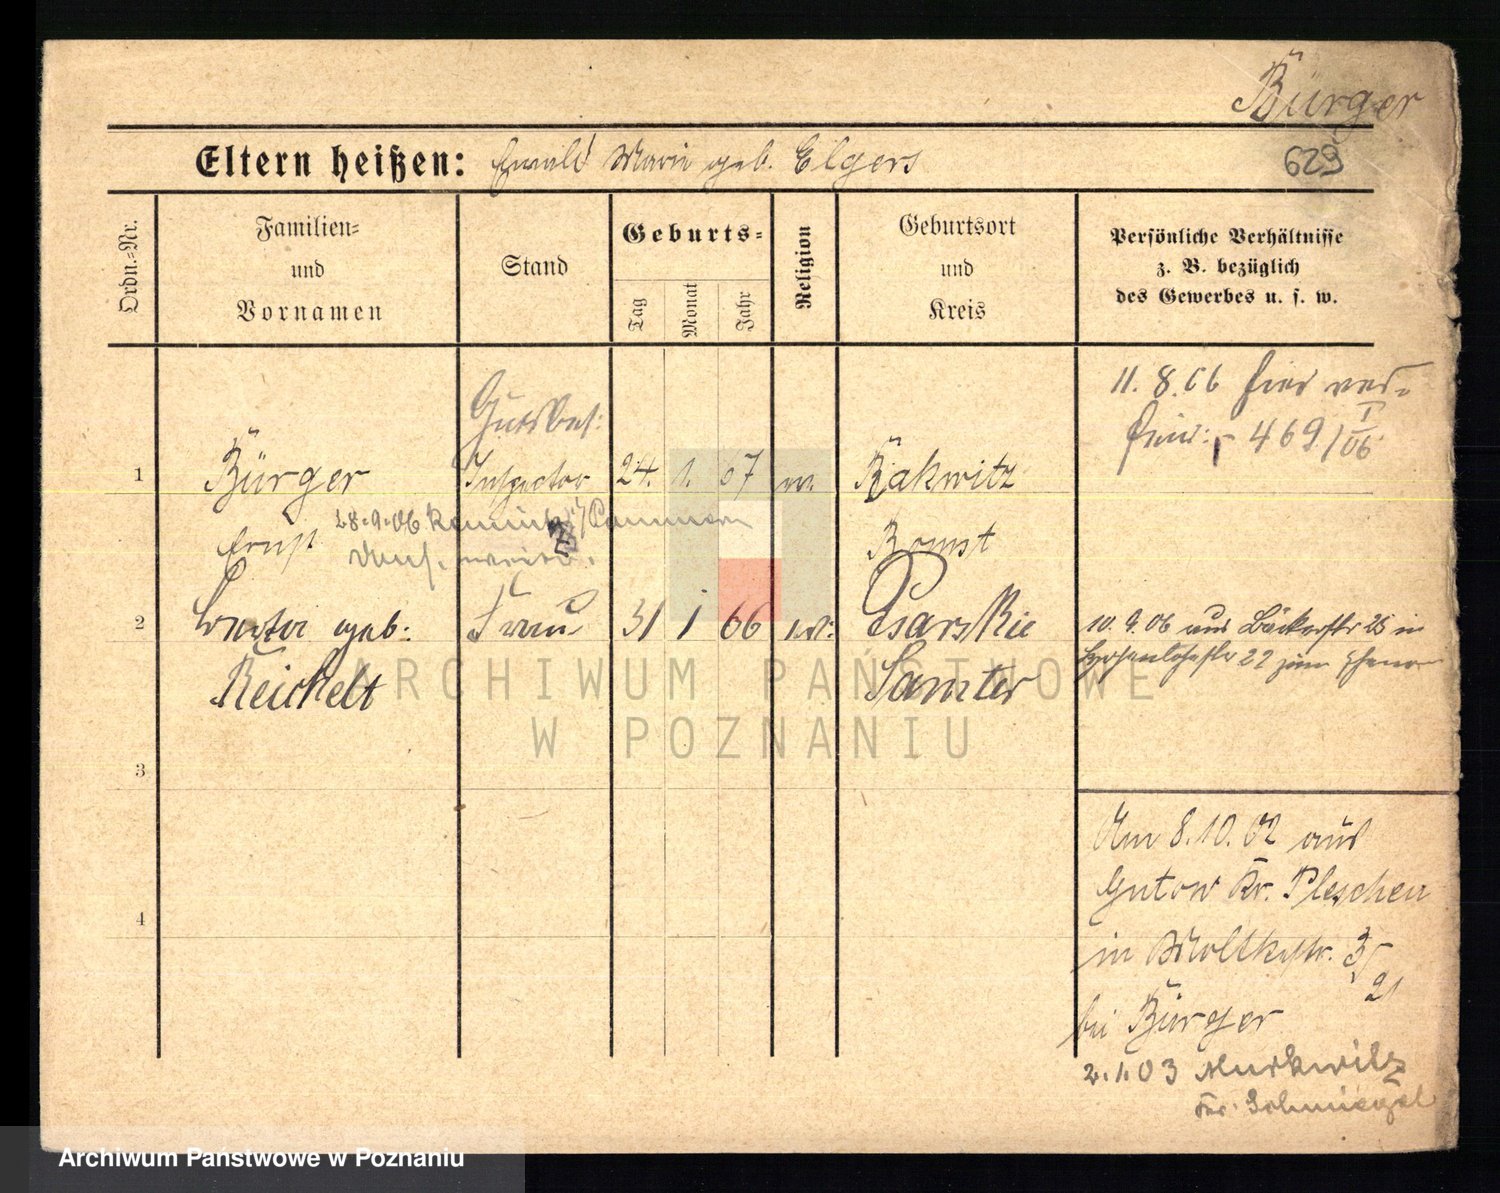 Bürger
Eltern heißen: Ewald Marie geb. Elgers
629
Ordn.-Nr.
Familien-
und
Vornamen
Stand
Geburts-
Tag
Monat
Jahr
Religion
Geburtsort
und
Kreis
Persönliche Verhältnisse
z. B. bezüglich
des Gewerbes u. s. w.
11. 8. 06 hier
469/I/06
Gutsbes:
1 Bürger Inspector 24. 1. 67 Rakwitz
28.9.06
Ernst Bomst
2 geb: Frau 31 1 66 Psarskie
Reichelt Samter
10. 9. 06 aus Bäckerstr 25 in
Hohenlohestr 22 zum
3
4
Am 8. 10. 02 aus
Gutow Kr. Pleschen
in Moltkestr. 3/
21
bei Bürger
2. 1. 03 Murkwitz
Kr. Schmiegel
ARCHIWUM PAŃSTWOWE
W POZNANIU
Archiwum Państwowe w Poznaniu